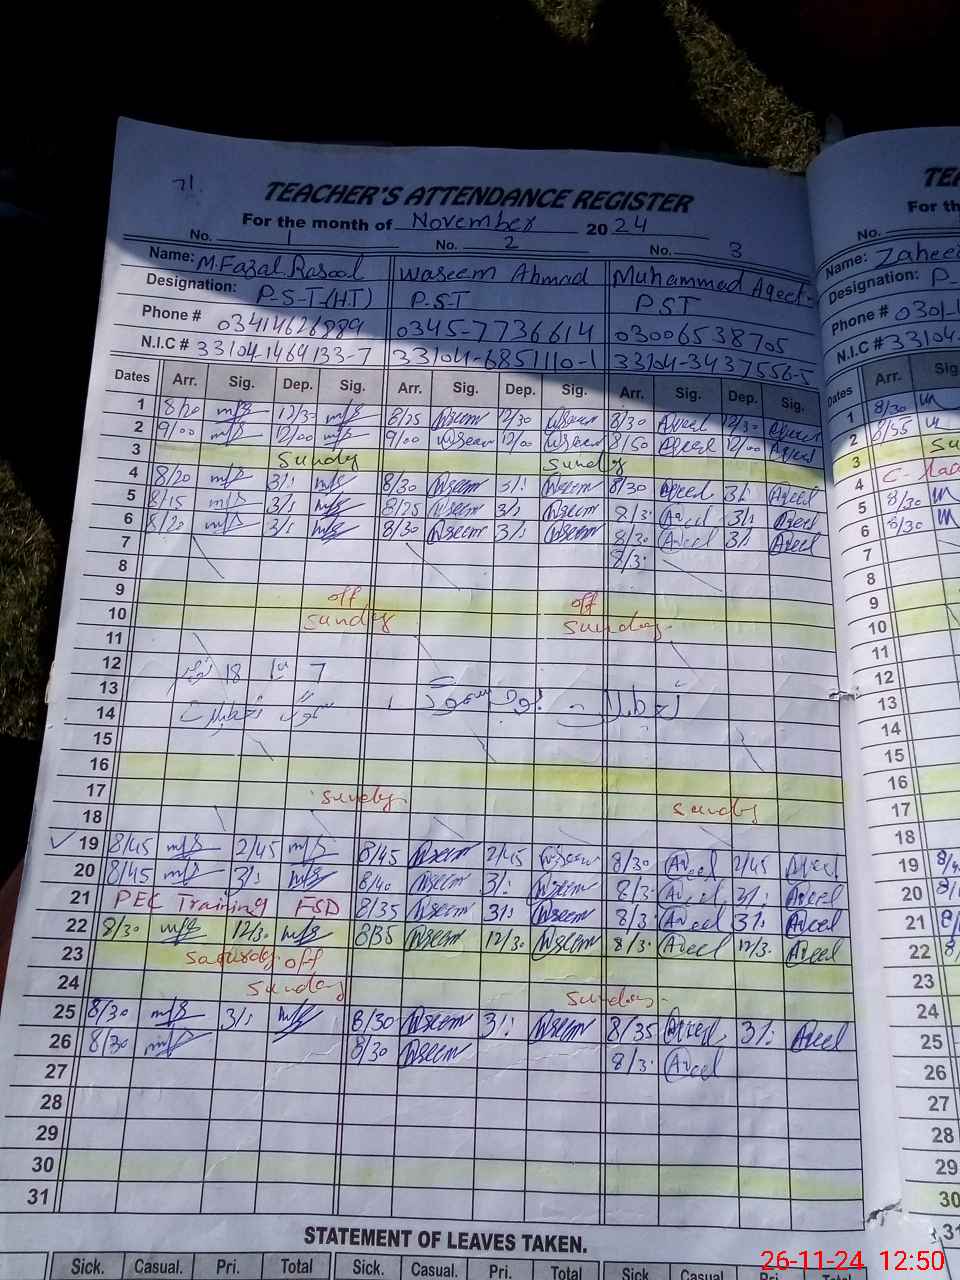 71.
TEACHER'S ATTENDANCE REGISTER
For the month of November 2024
No. 1 No. 2 No. 3
Name: M.Fazal Rasool Waseem Ahmad Muhammad Aqeel
Designation: P-S-T-(HT) P.S.T P.S.T
Phone # 03414626889 0345-7736614 03006538705
N.I.C # 33104-1469133-7 33104-6851110-1 33104-3437556-5
Dates Arr. Sig. Dep. Sig. Arr. Sig. Dep. Sig. Arr. Sig. Dep. Sig.
1 8/20 12/30 8/25 Waseem 12/30 Waseem 8/30 Aqeel 12/30 Aqeel
2 9/00 12/00 9/00 Waseem 12/00 Waseem 8/50 Aqeel 12/00 Aqeel
3 Sunday Sunday
4 8/20 3/: 8/30 Waseem 3/: Waseem 8/30 Aqeel 3/: Aqeel
5 8/15 3/: 8/25 Waseem 3/: Waseem 8/3: Aqeel 3/: Aqeel
6 8/20 3/: 8/30 Waseem 3/: Waseem 8/30 Aqeel 3/: Aqeel
7 8/3:
8
9 off off
10 Sunday Sunday
11
12 7 تا 18 نومبر
13 سموگ تعطیلات
14
15
16
17 Sunday Sunday
18
19 8/45 2/45 8/45 Waseem 2/45 Waseem 8/30 Aqeel 2/45 Aqeel
20 8/45 3/: 8/40 Waseem 3/: Waseem 8/3: Aqeel 3/: Aqeel
21 PEC Training FSD 8/35 Waseem 3/: Waseem 8/3: Aqeel 3/: Aqeel
22 8/30 12/30 8/35 Waseem 12/30 Waseem 8/3: Aqeel 12/3: Aqeel
23 Saturday off
24 Sunday Sunday
25 8/30 3/: 8/30 Waseem 3/: Waseem 8/35 Aqeel 3/: Aqeel
26 8/30 8/30 Waseem 8/3: Aqeel
27
28
29
30
31
STATEMENT OF LEAVES TAKEN.
Sick. Casual. Pri. Total Sick. Casual. Pri. Total Sick. Casual. Pri. Total
No.
Name:
Designation: P-
Phone # 0301-
N.I.C # 33104-
Dates Arr.
1 8/30
2 8/55
3
4
5 8/30
6 8/30
7
8
9
10
11
12
13
14
15
16
17
18
19
20
21
22
23
24
25
26
27
28
29
30
31
26-11-24 12:50